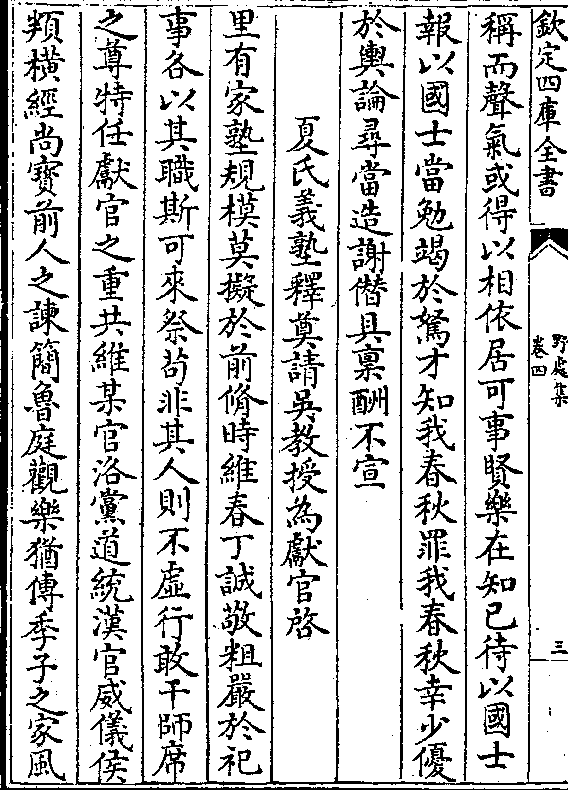 欽定四庫全書
野處集
卷四
三
稱而聲氣或得以相依居可事賢樂在知已待以國士
報以國士當勉竭於駑才知我春秋罪我春秋幸少優
於輿論尋當造謝僭具稟酬不宣
夏氏義塾釋奠請吳教授為獻官啓
里有家塾規模莫擬於前脩時維春丁誠敬粗嚴於祀
事各以其職斯可來祭茍非其人則不虛行敢干師席
之尊特任獻官之重共維某官洛黨道統漢官威儀侯
類橫經尚寶前人之諫簡魯庭觀樂猶傳季子之家風